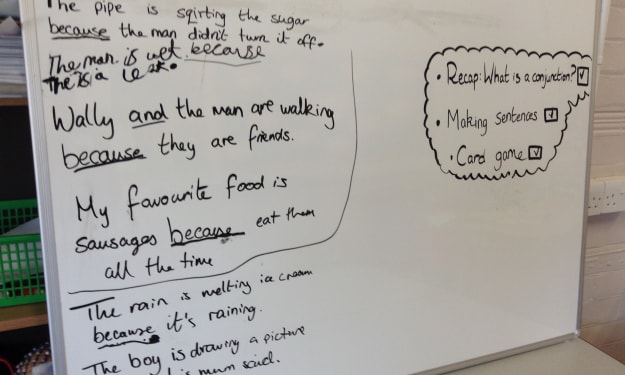 The pipe is sqirting the sugar
because the man didn't turn it off.
The man is wet because
The is a
Wally and the man are walking
because they are friends.
My favourite food is
sausages because eat them
all the time
The rain is melting ice cream
because it's raining.
The boy is drawing a picture
his mum said.
• Recap: What is a conjunction? ☑
• Making sentences ☑
• Card game ☑